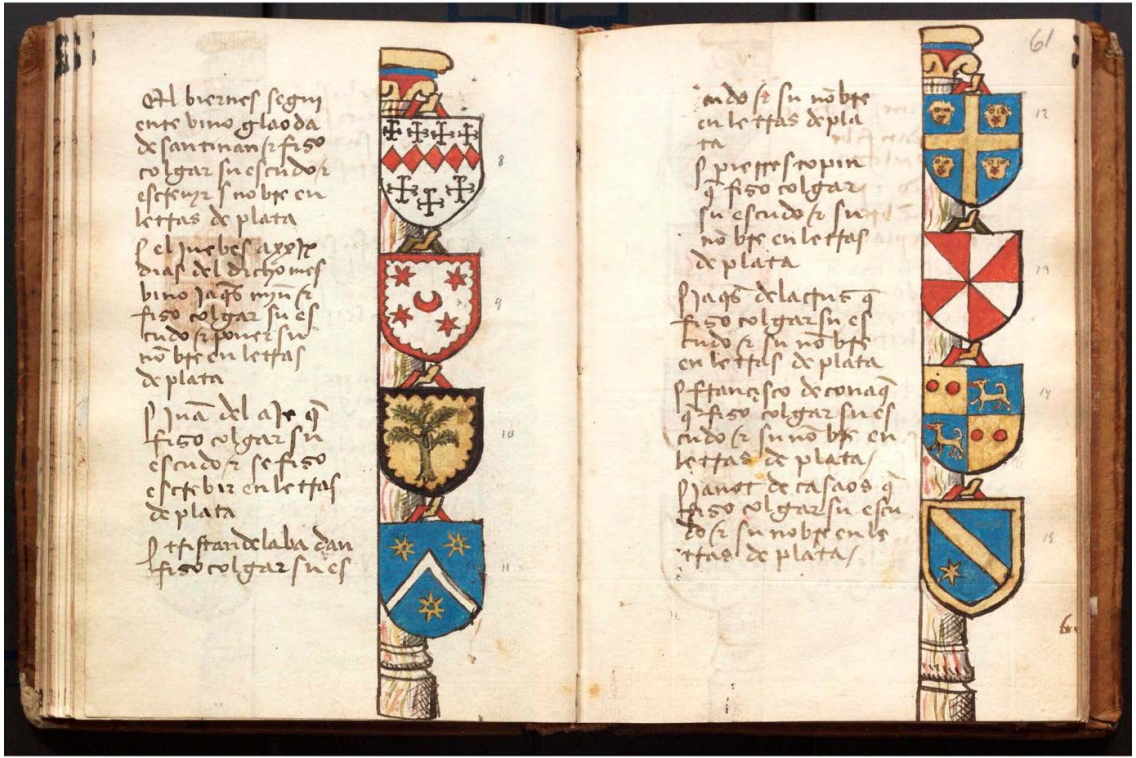 El biernes segui
ente vino glaoda
de santinan & fiso
colgar su escudo &
escrevyr s nobre en
letras de plata
el juebes a xxix
dias del dicho mes
vino Jaqs myn &
fiso colgar su es
cudo & poner su
nōbre en letras
de plata
Juā del aje q̄
fiso colgar su
escudo & se fiso
escrebir en letras
de plata
tristan de laba dan
fiso colgar su es
8
9
10
11
61
cudo & su nōbre
en letras de pla
ta
pierres copin
q̄ fiso colgar
su escudo & su
nōbre en letras
de plata
Jaqs de lactus q̄
fiso colgar su es
cudo & su nōbre
en letras de plata
francisco de conaq̄
q̄ fiso colgar su es
cudo & su nōbre en
letras de plata/
Janot de casaos q̄
fiso colgar su escu
do & su nobre en le
tras de plata/
12
13
14
15
6